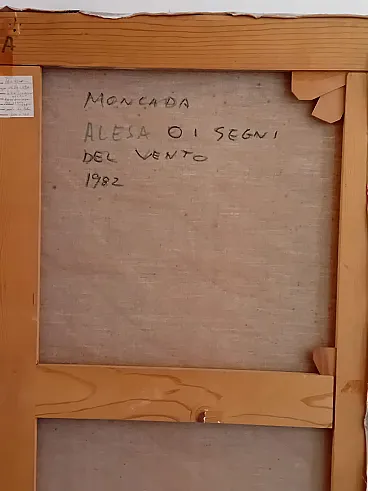 A
MONCADA
ALESA O I SEGNI
DEL VENTO
1982